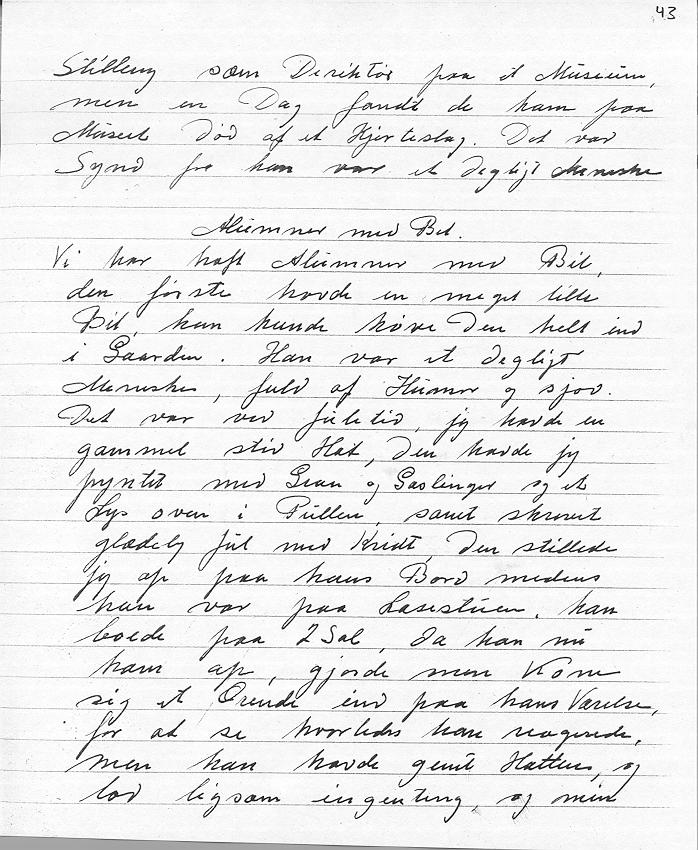 43
Stilling som Deriktør paa et Museum,
men en Dag fandt de ham paa
Museet død af et Hjerteslag. Det var
Synd for han var et dejligt Menneske
Alumner med Bil.
Vi har haft Alumner med Bil,
den første havde en meget lille
Bil, han kunde køre den helt ind
i Gaarden. Han var et dejligt
Menneske, fuld af Humor og sjov.
Det var ved Juletid, jeg havde en
gammel stiv Hat, den havde jeg
pyntet med Gran og Gæslinger og et
Lys oven i Pullen, samt skrevet
glædelig Jul med Kridt, den stillede
jeg op paa hans Bord medens
han var paa Læsestuen, han
boede paa 2 Sal, da han nu
kom op, gjorde min Kone
sig et Ærende ind paa hans Værelse,
for at se hvorledes han reagerede,
men han havde gemt Hatten, og
lod ligsom ingenting, og min